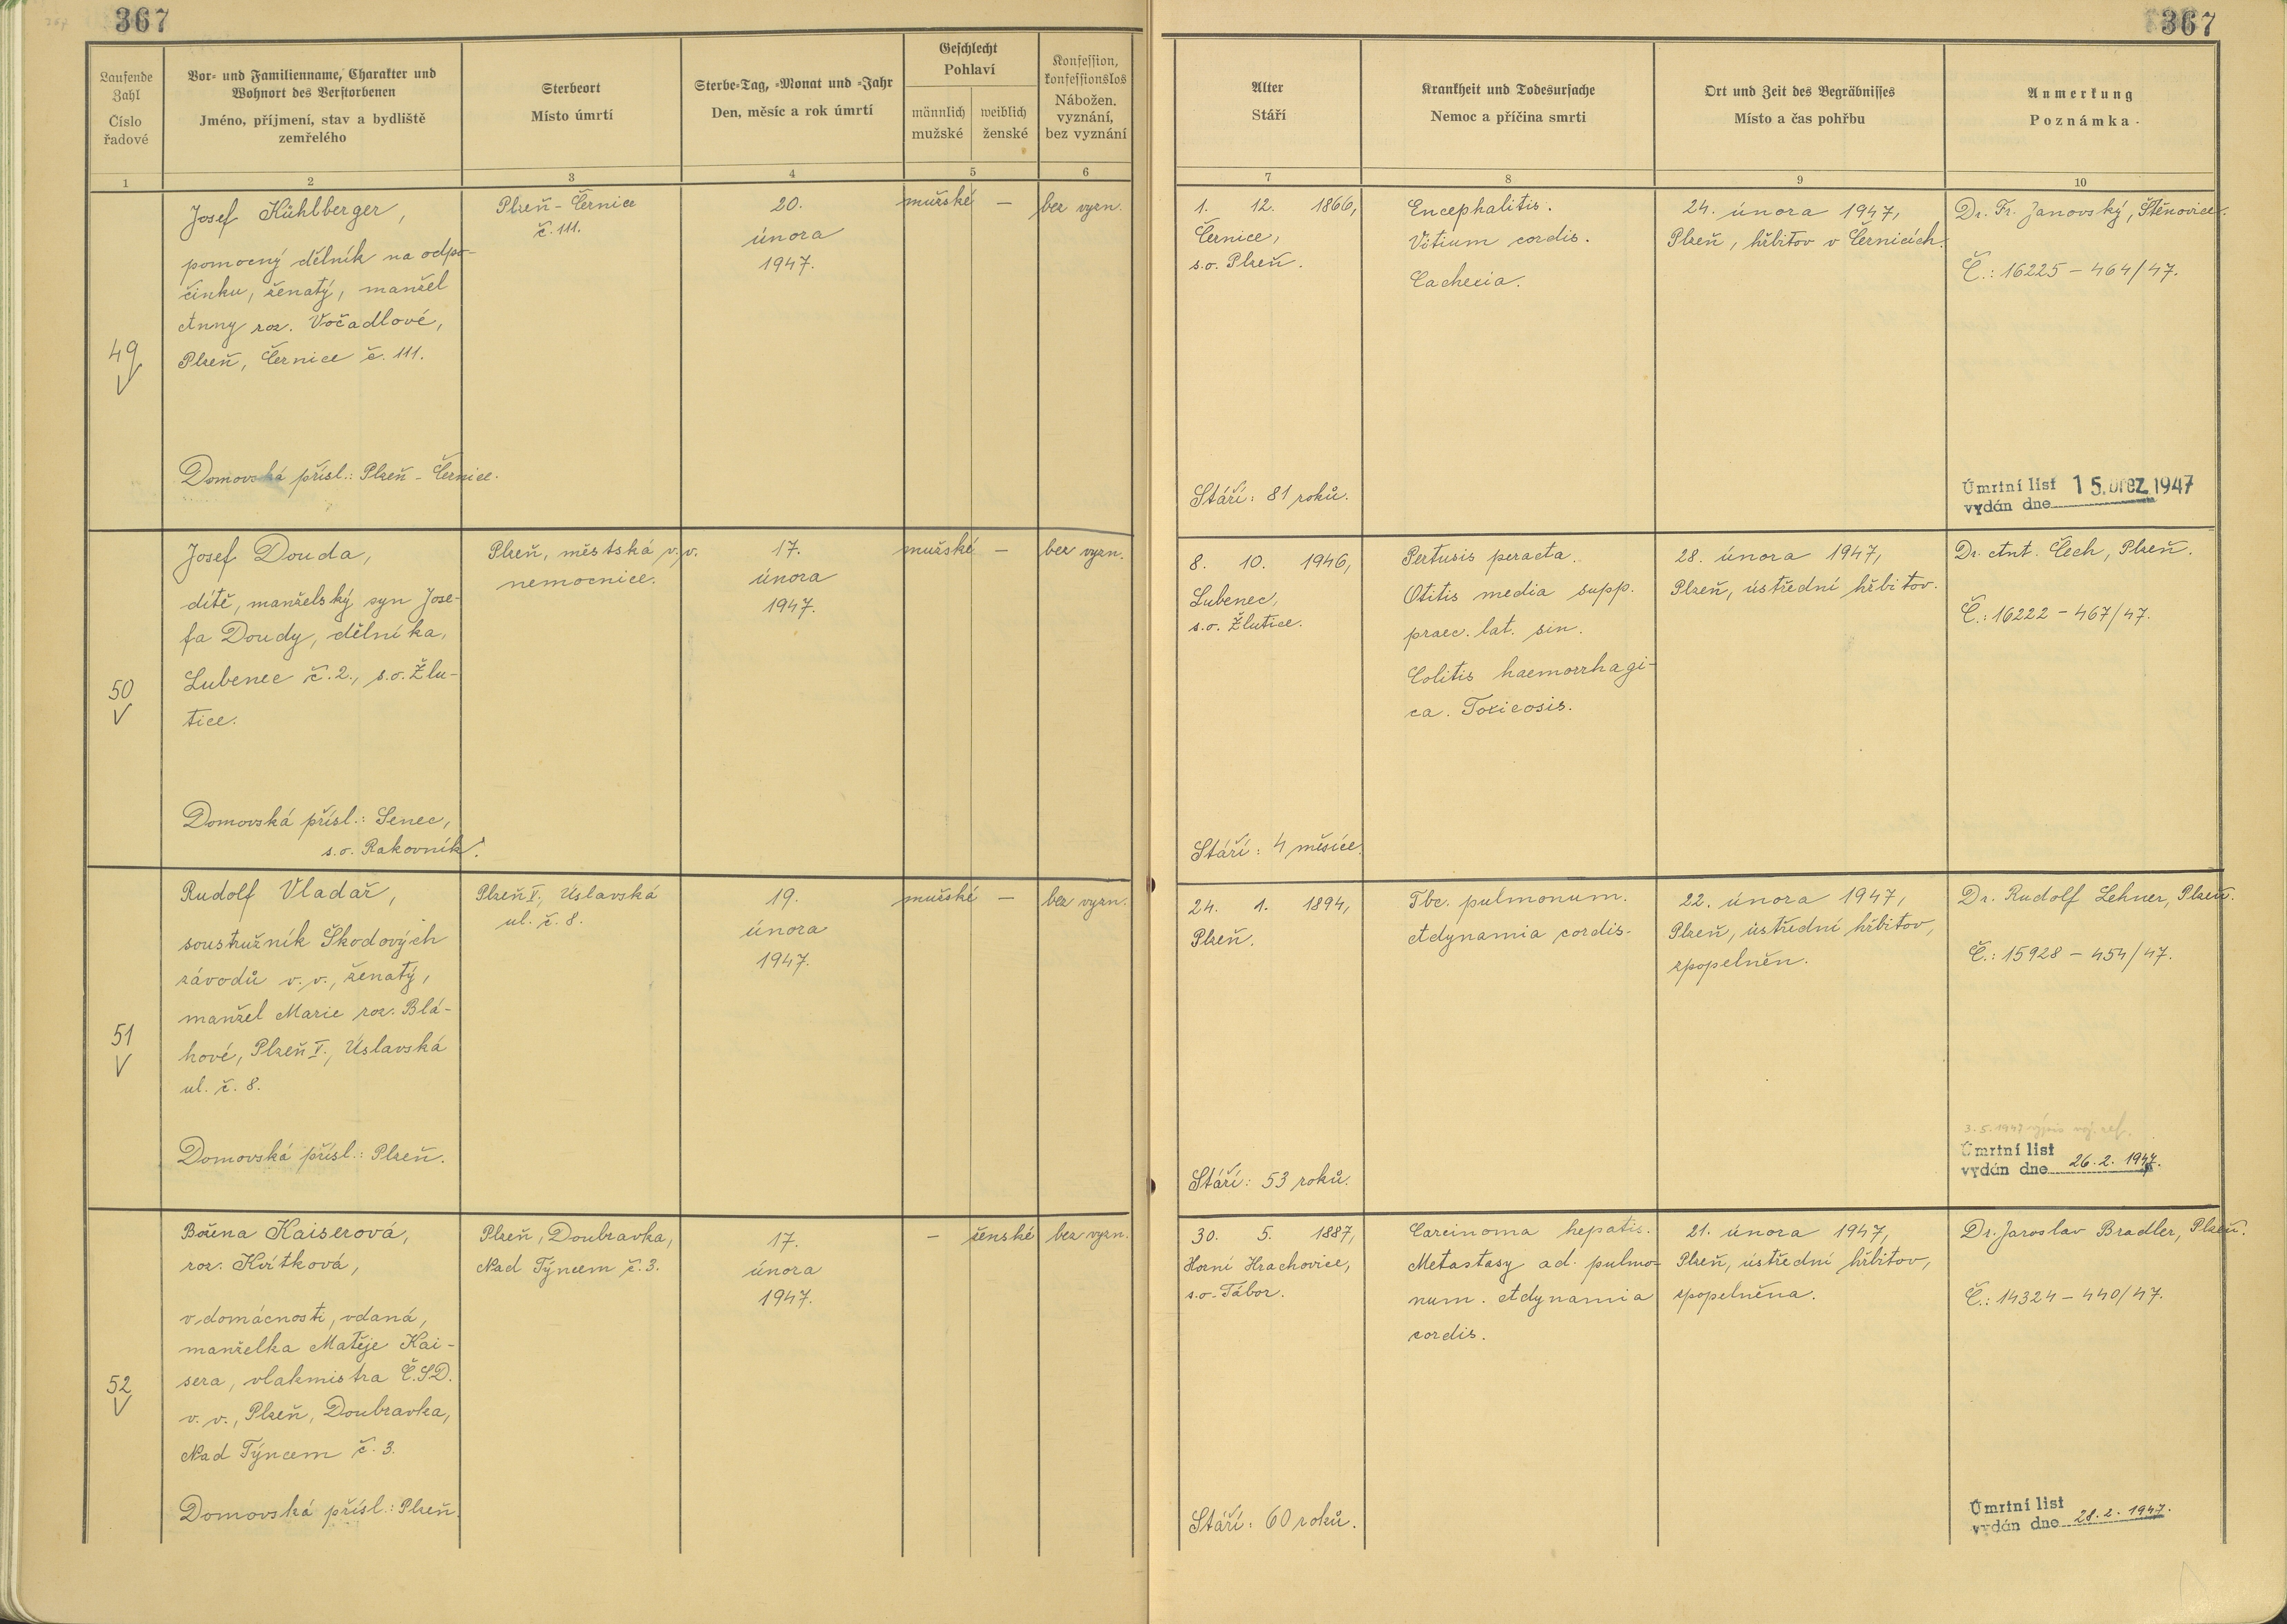 367
367
Laufende Zahl
Číslo řadové
Vor- und Familienname, Charakter und
Wohnort des Verstorbenen
Jméno, příjmení, stav a bydliště
zemřelého
Sterbeort
Místo úmrtí
Sterbe-Tag, -Monat und -Jahr
Den, měsíc a rok úmrtí
Geschlecht
Pohlaví
männlich
mužské
weiblich
ženské
Konfession,
konfessionslos
Nábožen.
vyznání,
bez vyznání
Alter
Stáří
Krankheit und Todesursache
Nemoc a příčina smrti
Ort und Zeit des Begräbnisses
Místo a čas pohřbu
Anmerkung
Poznámka
1
2
3
4
5
6
7
8
9
10
49
Josef Kühlberger,
pomocný dělník na odpo-
činku, ženatý, manžel
Anny roz. Vočadlové,
Plzeň, Černice č. 111.
Domovská přísl.: Plzeň - Černice.
Plzeň - Černice
č. 111.
20.
února
1947.
mužské
—
bez vyzn.
1. 12. 1866,
Černice,
s.o. Plzeň.
Stáří: 81 roků.
Encephalitis.
Vitium cordis.
Cachexia.
24. února 1947,
Plzeň, hřbitov v Černicích.
Dr. Fr. Janovský, Štěnovice.
Č.: 16225 - 464/47.
Úmrtní list
vydán dne 15. břez. 1947
50
Josef Douda,
dítě, manželský syn Jose-
fa Doudy, dělníka,
Lubenec č. 2., s.o. Žlu-
tice.
Domovská přísl.: Senec,
s.o. Rakovník.
Plzeň, městská v.v.
nemocnice.
17.
února
1947.
mužské
—
bez vyzn.
8. 10. 1946,
Lubenec,
s.o. Žlutice.
Stáří: 4 měsíce.
Pertusis peracta.
Otitis media supp.
praec. lat. sin.
Colitis haemorrhagi-
ca. Toxicosis.
28. února 1947,
Plzeň, ústřední hřbitov.
Dr. Ant. Čech, Plzeň.
Č.: 16222 - 467/47.
51
Rudolf Vladař,
soustružník Škodových
závodů v. v., ženatý,
manžel Marie roz. Blá-
hové, Plzeň V., Úslavská
ul. č. 8.
Domovská přísl.: Plzeň.
Plzeň V., Úslavská
ul. č. 8.
19.
února
1947.
mužské
—
bez vyzn.
24. 1. 1894,
Plzeň.
Stáří: 53 roků.
Tbc. pulmonum.
Adynamia cordis.
22. února 1947,
Plzeň, ústřední hřbitov,
zpopelněn.
Dr. Rudolf Lehner, Plzeň.
Č.: 15928 - 454/47.
3. 5. 1947 výpis
Úmrtní list
vydán dne 26. 2. 1947.
52
Božena Kaiserová,
roz. Kvítková,
v domácnosti, vdaná,
manželka Matěje Kai-
sera, vlakmistra Č.S.D.
v. v., Plzeň, Doubravka,
Nad Týncem č. 3.
Domovská přísl.: Plzeň.
Plzeň, Doubravka,
Nad Týncem č. 3.
17.
února
1947.
—
ženské
bez vyzn.
30. 5. 1887,
Horní Hrachovice,
s.o. Tábor.
Stáří: 60 roků.
Carcinoma hepatis.
Metastasy ad. pulmo-
num. Adynamia
cordis.
21. února 1947,
Plzeň, ústřední hřbitov,
zpopelněna.
Dr. Jaroslav Bradler, Plzeň.
Č.: 14324 - 440/47.
Úmrtní list
vydán dne 28. 2. 1947.